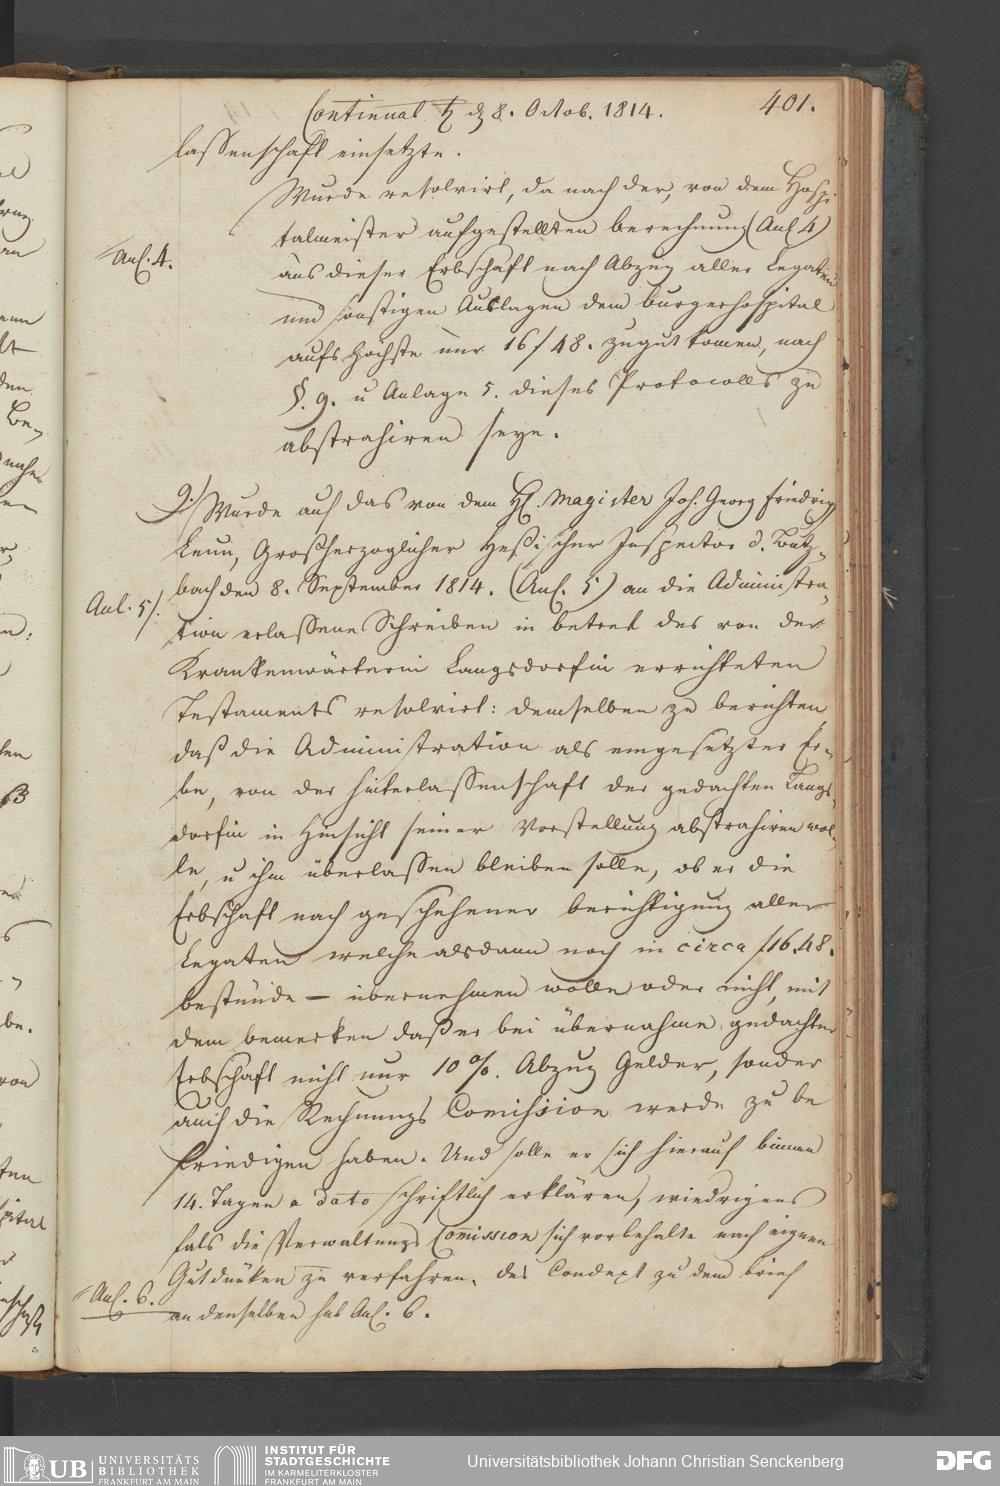 Continuat ♄ d 8. Octob. 1814.
401.
lassenschaft einsetzte.
Wurde resolvirt, da nach der, von dem Hospi-
talmeister aufgestellten berechnung (Anl 4)
Anl. 4.
aus dieser Erbschaft nach Abzug aller Legaten
und sonstigen Auslagen dem burgerhospital
aufs höchste nur 16/48. zugut komen, nach
§. 9. u Anlage 5. dieses Protocolls zu
abstrahiren seye.
9./ Wurde auf das von dem H. Magister Joh. Georg Friedrig
Leun, Großherzoglicher Heßischer Inspector d. Butz-
bach den 8. September 1814. (Anl. 5) an die Administra-
Anl. 5/.
tion erlassene Schreiben in betref des von der
Krankenwärterin Langsdorfin errichteten
Testaments resolvirt: demselben zu berichten
daß die Administration als eingesetzter Er-
be, von der hinterlassenschaft der gedachten Langs-
dorfin in Hinsicht seiner Vorstellung abstrahiren wol-
le, u ihm überlassen bleiben solle, ob er die
Erbschaft nach geschehener berichtigung aller
Legaten welche alsdann noch in circa f16.48.
bestünde — übernehmen wolle oder nicht, mit
dem bemerken daß er bei übernahme gedachter
Erbschaft nicht nur 10%. Abzug Gelder, sonder
auch die Rechnungs Comission werde zu be
friedigen haben. Und solle er sich hierauf binnen
14. Tagen a dato schriftlich erklären, wiedrigens
fals die Verwaltungs Comission sich vorbehalte nach eignen
Gutdünken zu verfahren. des Concept zu dem brief
Anl. 6.
an denselben sub Anl. 6.
UB UNIVERSITÄTS
BIBLIOTHEK
FRANKFURT AM MAIN
INSTITUT FÜR
STADTGESCHICHTE
IM KARMELITERKLOSTER
FRANKFURT AM MAIN
Universitätsbibliothek Johann Christian Senckenberg
DFG